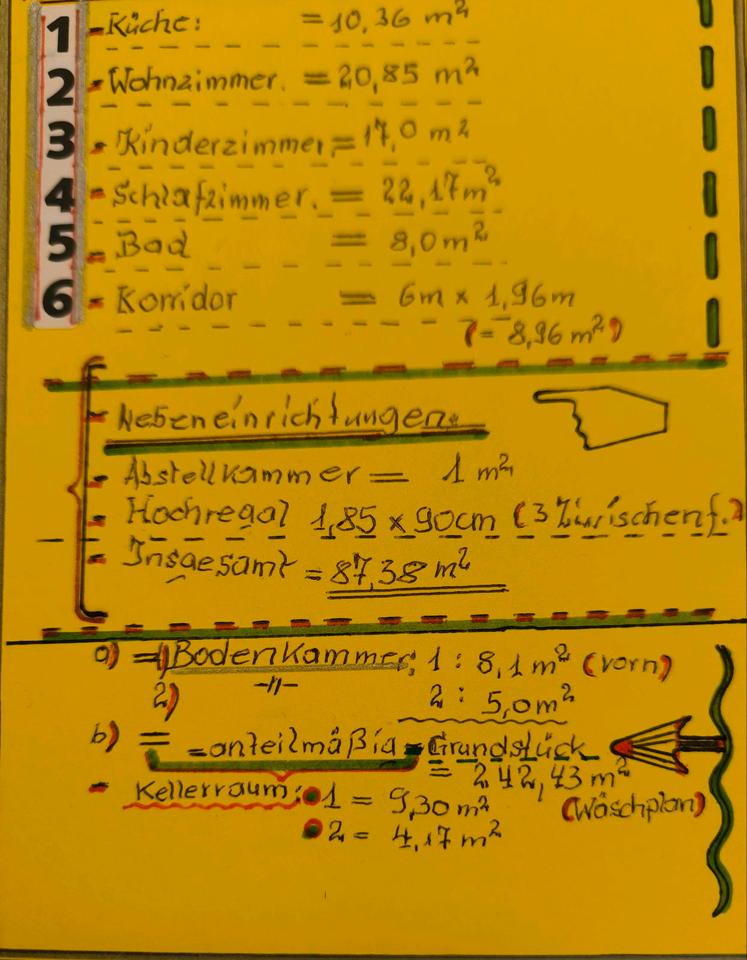 1 - Küche: = 10,36 m²
2 - Wohnzimmer. = 20,85 m²
3 - Kinderzimmer = 17,0 m²
4 - Schlafzimmer. = 22,17 m²
5 - Bad = 8,0 m²
6 - Korridor = 6m x 1,96m
(= 8,96 m²)
- Nebeneinrichtungen.
- Abstellkammer = 1 m²
- Hochregal 1,85 x 90cm (3 Zwischenf.)
- Insgesamt = 87,38 m²
a) = 1) Bodenkammer; 1 : 8,1 m² (vorn)
2) -"- 2 : 5,0 m²
b) = = anteilmäßig = Grundstück
= 242,43 m²
- Kellerraum: 1 = 9,30 m² (Wäschplan)
2 = 4,17 m²